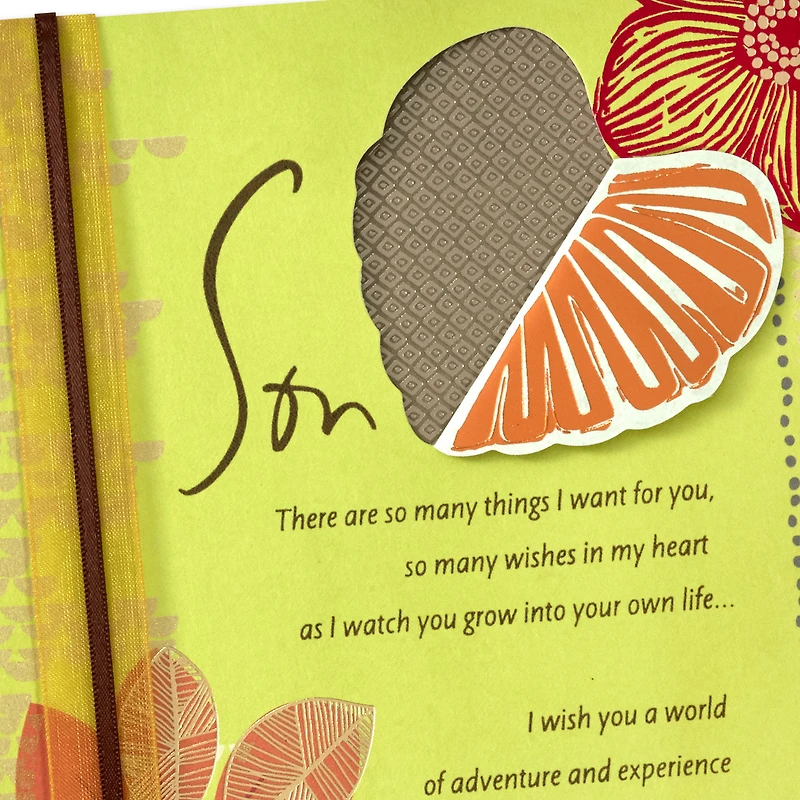 Son
There are so many things I want for you,
so many wishes in my heart
as I watch you grow into your own life...
I wish you a world
of adventure and experience